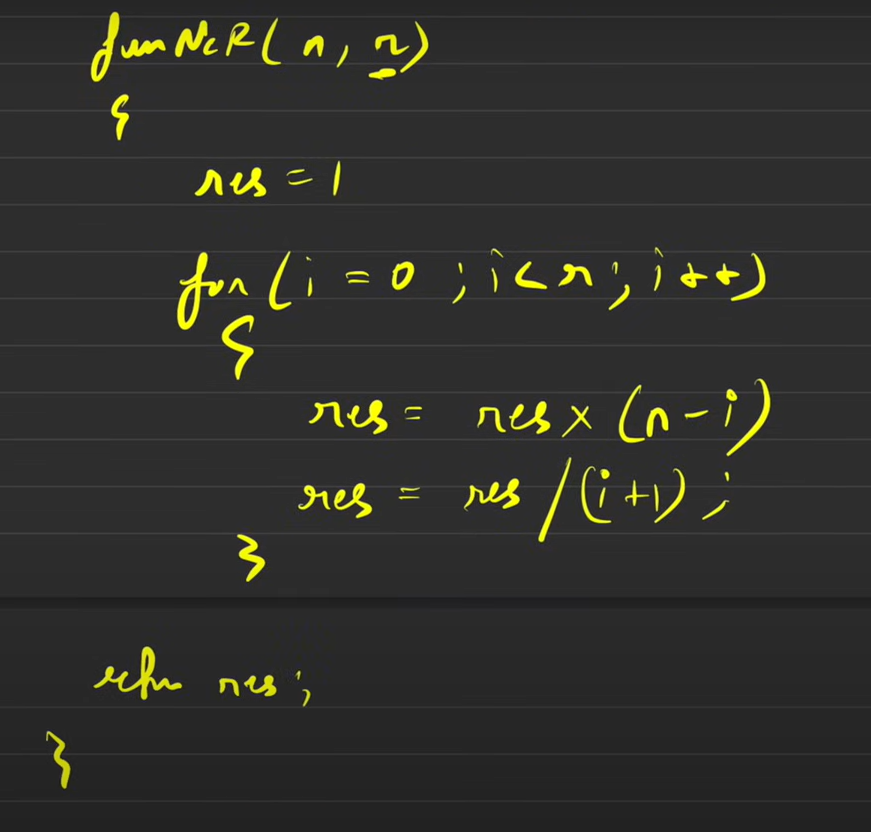 fun NcR(n, r)
{
res = 1
for(i = 0 ; i < r; i++)
{
res = res × (n - i)
res = res / (i + 1) ;
}
return res ;
}